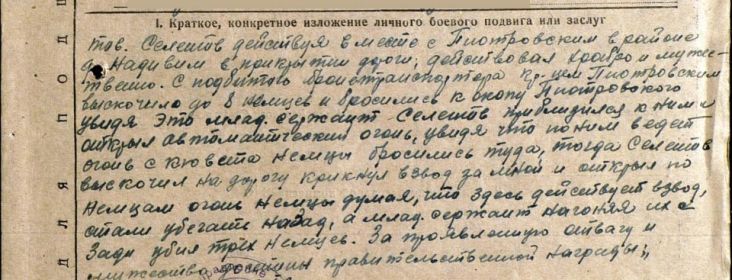 I. Краткое, конкретное изложение личного боевого подвига или заслуг
тов. Селетев действуя вместе с Пиотровским в районе
д. Надивим в прикрытии дороги, действовал храбро и муже-
ственно. С подбитого бронетранспортера кр-цем Пиотровским
выскочило до 8 немцев и бросились к окопу Пиотровского
увидя это млад. сержант Селетев приблизился к ним и
открыл автоматический огонь, увидя что по ним ведет
огонь с кювета немцы бросились туда, тогда Селетев
выскочил на дорогу крикнул взвод за мной и открыл по
немцам огонь немцы думая, что здесь действует взвод,
стали убегать назад, а млад. сержант нагоняя их с
зади убил трех немцев. За проявленную отвагу и
мужество достоин правительственной награды;
Д Л Я П О Д